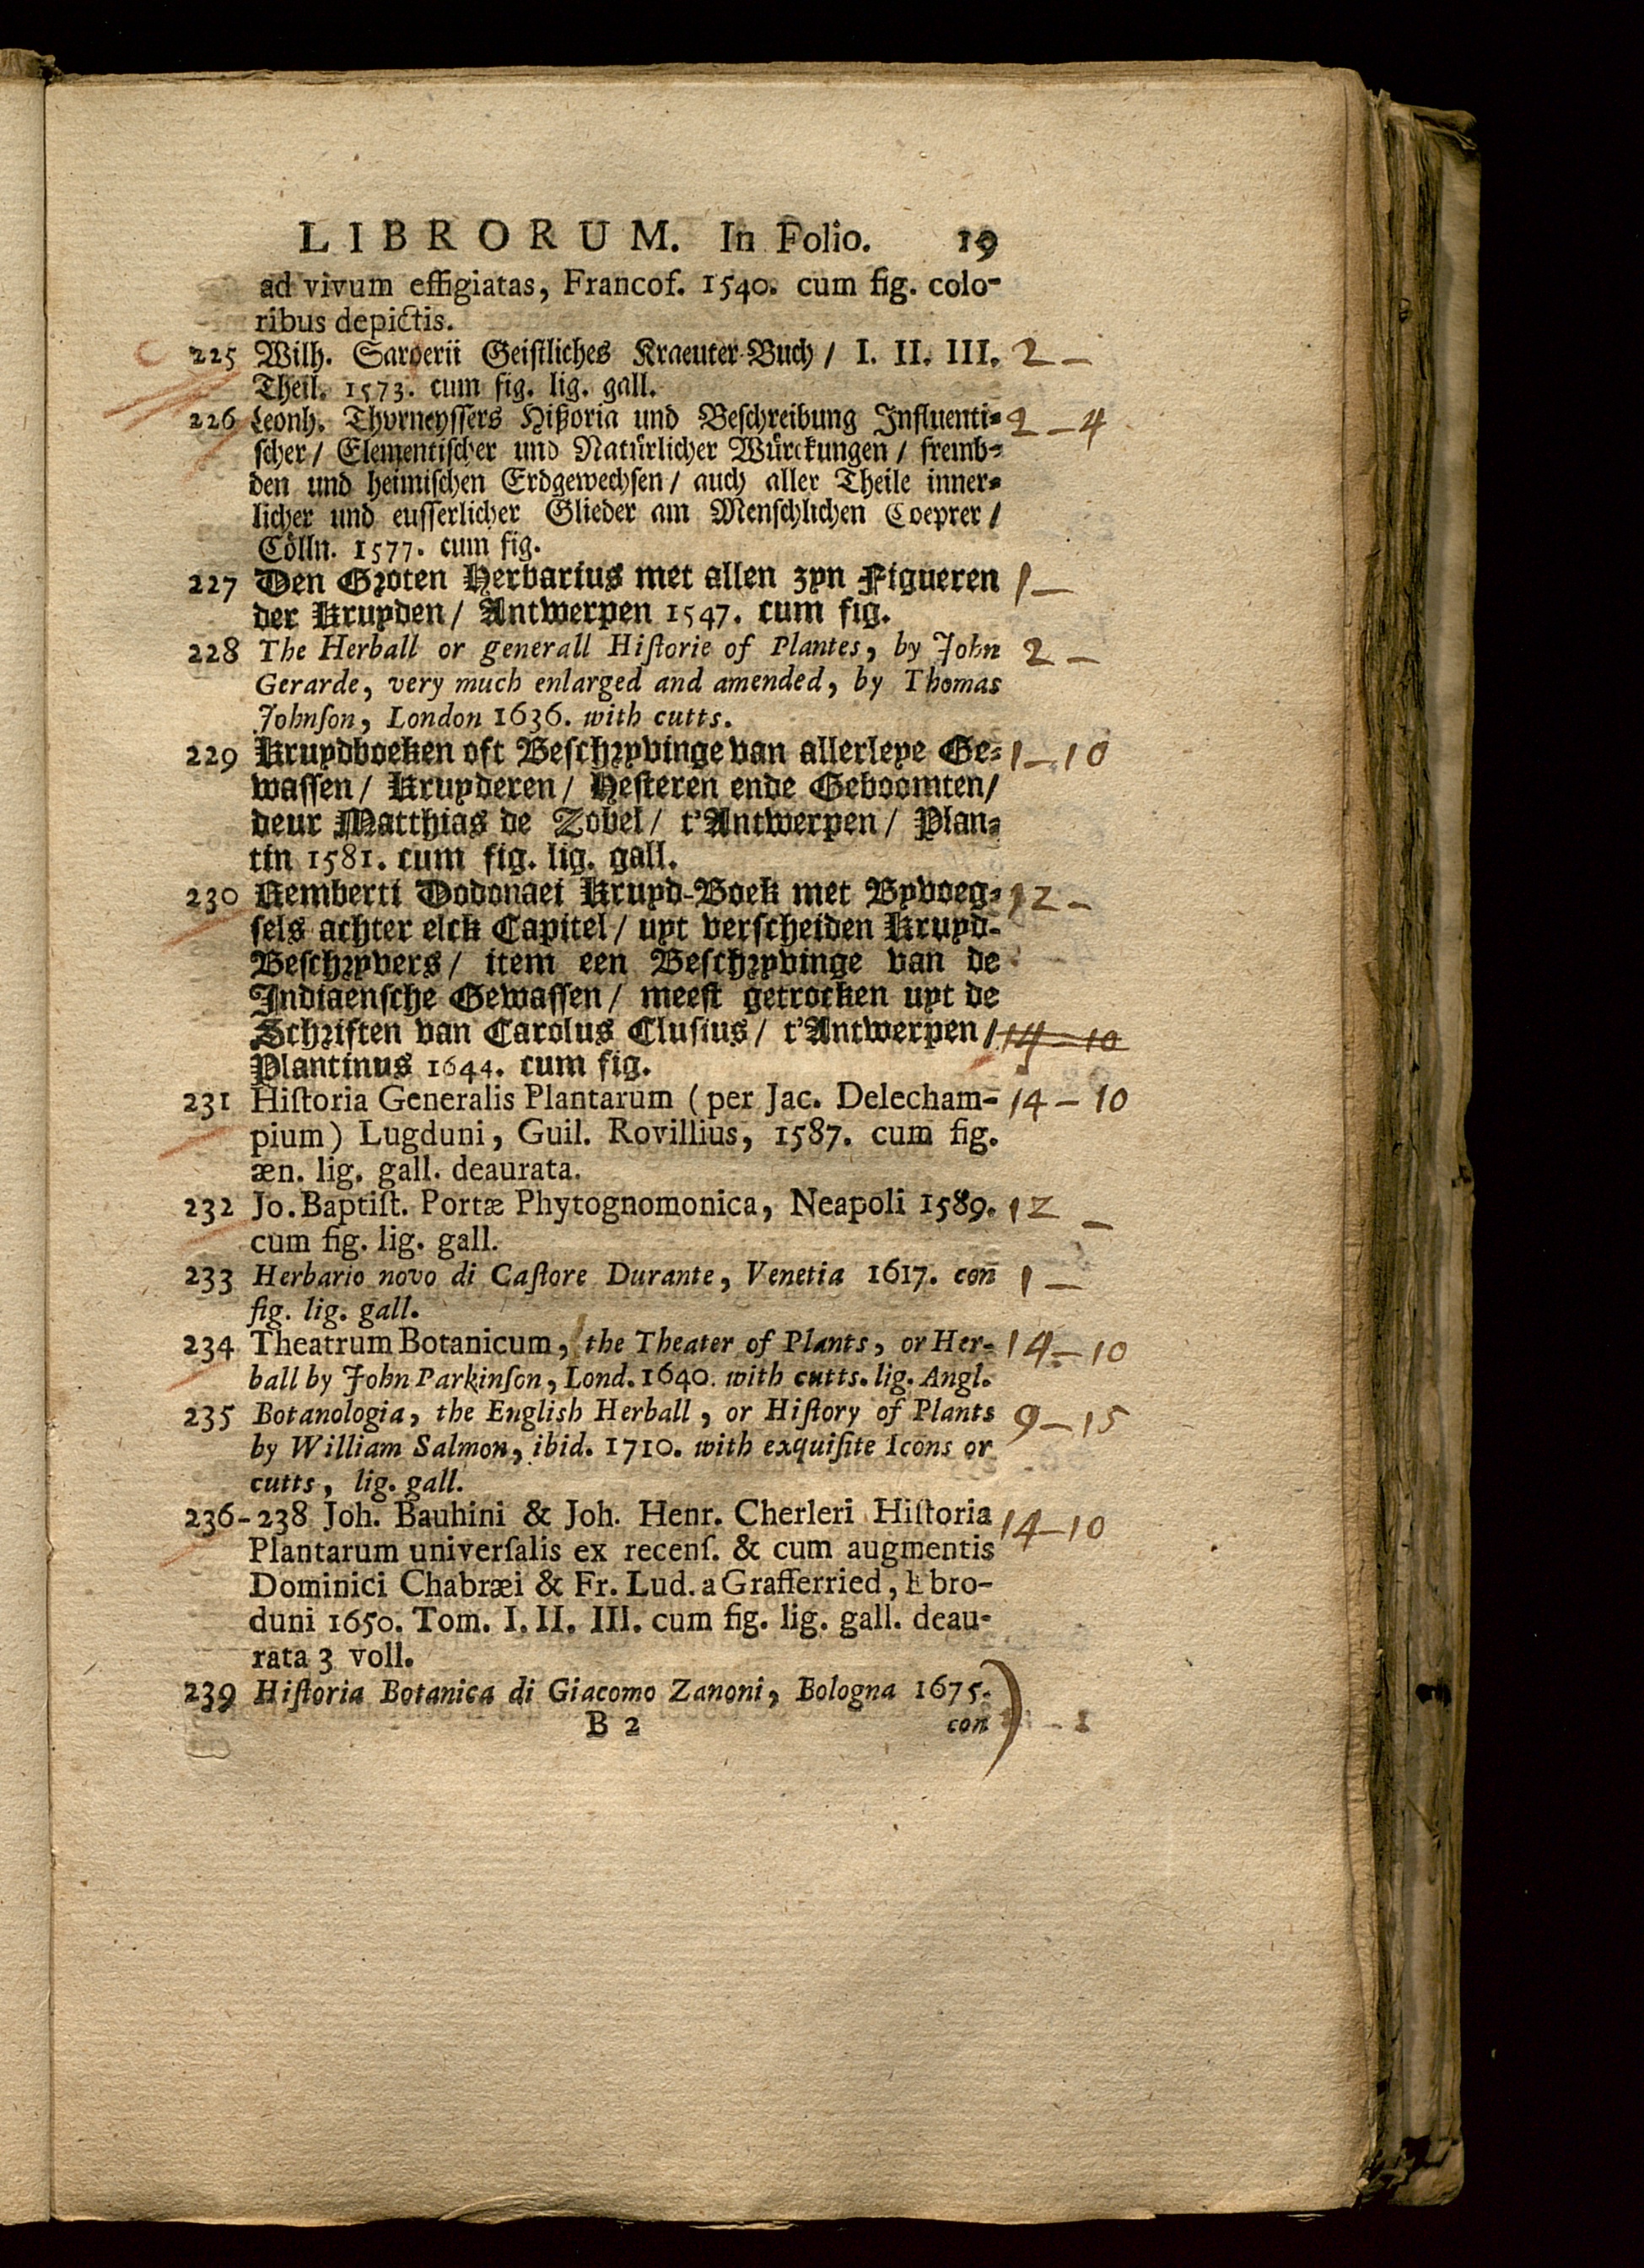 LIBRORUM. In Folio. 19
ad vivum effigiatas, Francof. 1540. cum fig. colo-
ribus depictis.
225 Wilh. Sarcerii Geistliches Kraeuter-Buch / I. II. III. 2 –
Theil. 1573. cum fig. lig. gall.
226 Leonh. Thurneyssers Hißoria und Beschreibung Influenti- 2 – 4
scher / Elementischer und Natürlicher Würckungen / fremb-
den und heimischen Erdgewechsen / auch aller Theile inner-
licher und eusserlicher Glieder am Menschlichen Coeprer /
Cölln. 1577. cum fig.
227 Den Groten Herbarius met allen zyn Figueren 1 –
der Kruyden / Antwerpen 1547. cum fig.
228 The Herball or generall Hiſtorie of Plantes, by John 2 –
Gerarde, very much enlarged and amended, by Thomas
Johnſon, London 1636. with cutts.
229 Kruydboeken oft Beschryvinge van allerleye Ge- 1 – 10
wassen / Kruyderen / Hesteren ende Geboomten /
deur Matthias de Lobel / t'Antwerpen / Plan-
tin 1581. cum fig. lig. gall.
230 Remberti Dodonaei Kruyd-Boek met Byvoeg- 12 –
sels achter elck Capitel / uyt verscheiden Kruyd-
Beschryvers / item een Beschryvinge van de
Indiaensche Gewassen / meest getrocken uyt de
Schriften van Carolus Clusius / t'Antwerpen / 14 – 10
Plantinus 1644. cum fig.
231 Hiſtoria Generalis Plantarum (per Jac. Delecham- 14 – 10
pium) Lugduni, Guil. Rovillius, 1587. cum fig.
æn. lig. gall. deaurata.
232 Jo. Baptiſt. Portæ Phytognomonica, Neapoli 1589. 12 –
cum fig. lig. gall.
233 Herbario novo di Caſtore Durante, Venetia 1617. con 1 –
fig. lig. gall.
234 Theatrum Botanicum, the Theater of Plants, or Her- 14 – 10
ball by John Parkinſon, Lond. 1640. with cutts. lig. Angl.
235 Botanologia, the English Herball, or Hiſtory of Plants 9 – 15
by William Salmon, ibid. 1710. with exquiſite Icons or
cutts, lig. gall.
236-238 Joh. Bauhini & Joh. Henr. Cherleri Hiſtoria 14 – 10
Plantarum univerſalis ex recenſ. & cum augmentis
Dominici Chabræi & Fr. Lud. a Grafferried, Ebro-
duni 1650. Tom. I. II. III. cum fig. lig. gall. deau-
rata 3 voll.
239 Hiſtoria Botanica di Giacomo Zanoni, Bologna 1675.
B 2 con